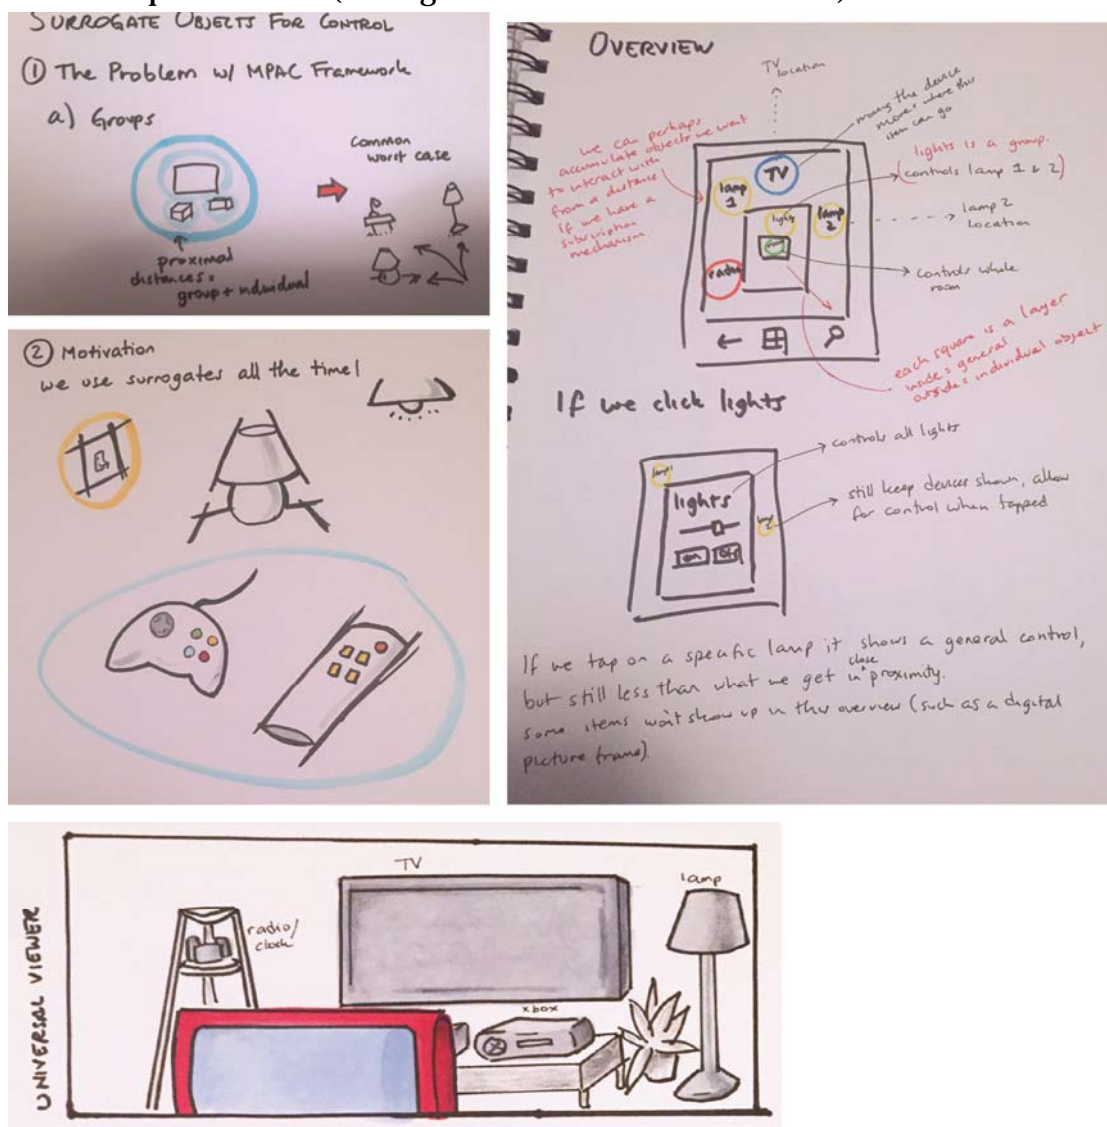 SURROGATE OBJECTS FOR CONTROL
① The Problem w/ MPAC Framework
a) Groups
Common
worst case
proximal
distances =
group + individual
② Motivation
we use surrogates all the time!
OVERVIEW
TV
location
moving the device
moves where this
item can go
we can perhaps
accumulate objects we want
to interact with
from a distance
if we have a
subscription
mechanism.
(lights is a group.
controls lamp 1 & 2)
TV
lamp
1
lights
lamp
2
radio
lamp 2
location
controls whole
room
each square is a layer
inside = general
outside = individual object
If we click lights
controls all lights
lamp1
lights
on
off
still keep devices shown, allow
for control when tapped
If we tap on a specific lamp it shows a general control,
but still less than what we get in close proximity.
some items won't show up in this overview (such as a digital
picture frame).
UNIVERSAL VIEWER
TV
lamp
radio/
clock
xbox